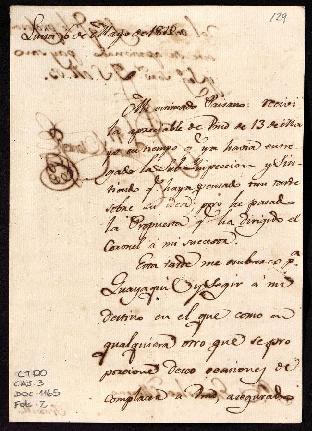 129
Lima, 6 de Mayo de 1818
Mi estimado Paisano: recivi
la apreciable de Vmd de 13 de Ma
yo en tiempo q.e ya havia entre
gado la Sub Inspeccion y Sin
tiendo q.e haya pensado tan tarde
sobre la idea, pero he pasado
la Propuesta q.e ha dirigido el
Coronel á mi succesor.
Esta tarde me embarco p.a
Guayaquil y seguir á mi
destino en el que como en
qualquiera otro que se pro
porcione deseo ocasiones de
complacer a Vmd asegurado
CTDO
CAS. 3
DOC. 1165
Fol. 2